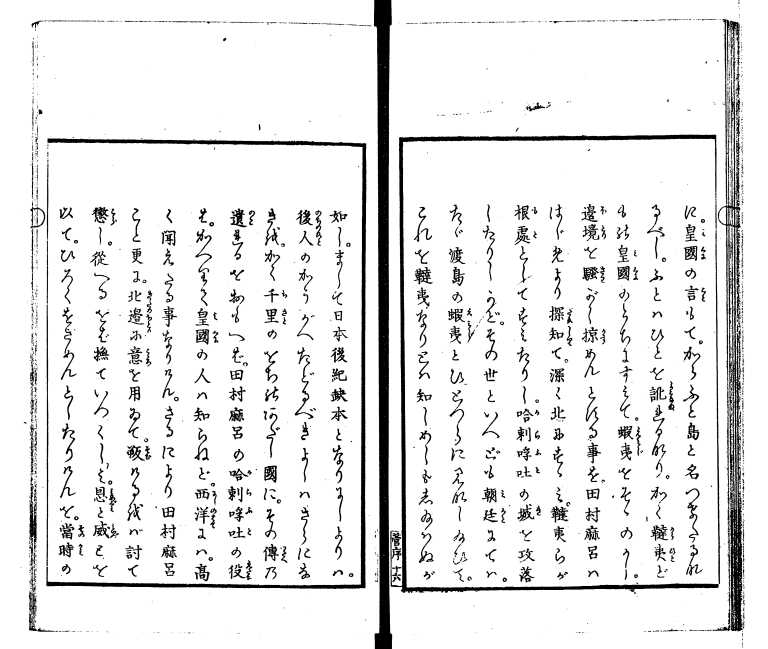 に皇國の言もて。からふと島と名つきたるな
るべし。ふとハひとを訛れるなり。かく韃夷ど
も皇國のうちにすミて。蝦夷をそゝのかし。
邊境を騒がし掠めんとする事を。田村麻呂ハ
はじめより探知て。深く北にすゝミ。韃夷らが
根處としてすミたりし。哈剌呼吐の城を攻落
したりしかど。その世といへども朝廷にてハ。
たゞ渡島の蝦夷とひとつらに見なしひて。
これを韃夷なりとハ知しめしもハぬが
菅序 十六
如し。まして日本後紀缺本となりにしよりハ。
後人のかうがへたどるべきよしハさらにな
きを。かく千里のをちなるあだし國に。その傳乃
遺れるを思へバ。田村麻呂の哈剌呼吐の役
を。かへりて皇國の人ハ知らねど。西洋にハ。高
く聞えたる事なりけん。さるにより田村麻呂
こと更に。北邉に意を用ゐて。叛けるをバ討て
懲し。從へるをば撫ていつくしミ。恩と威とを
以て。ひろくをさめんとしたりけんを。當時の